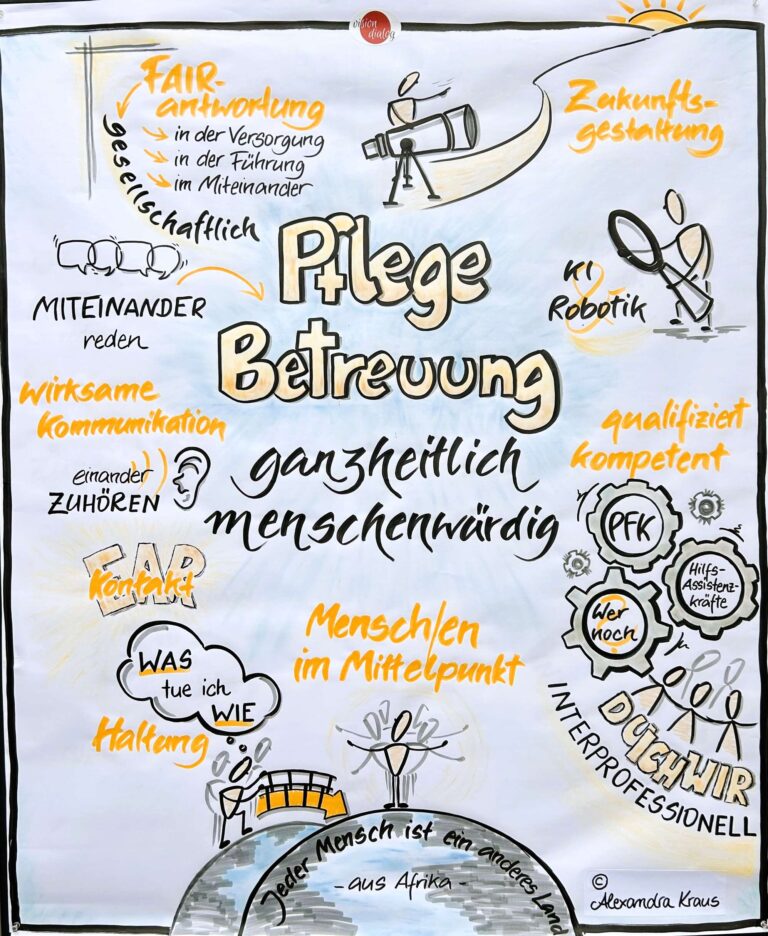 vision
dialog
FAIR-
antwortung
in der Versorgung
in der Führung
im Miteinander
gesellschaftlich
Zukunfts-
gestaltung
MITEINANDER
reden
Pflege
Betreuung
ganzheitlich
menschenwürdig
KI
&
Robotik
wirksame
Kommunikation
einander
ZUHÖREN
EAR
Kontakt
qualifiziert
kompetent
PFK
Hilfs-
Assistenz-
kräfte
Wer
noch
?
Mensch/en
im Mittelpunkt
WAS
tue ich
WIE
Haltung
DU ICH WIR
INTERPROFESSIONELL
Jeder Mensch ist ein anderes Land
- aus Afrika -
©
Alexandra Kraus